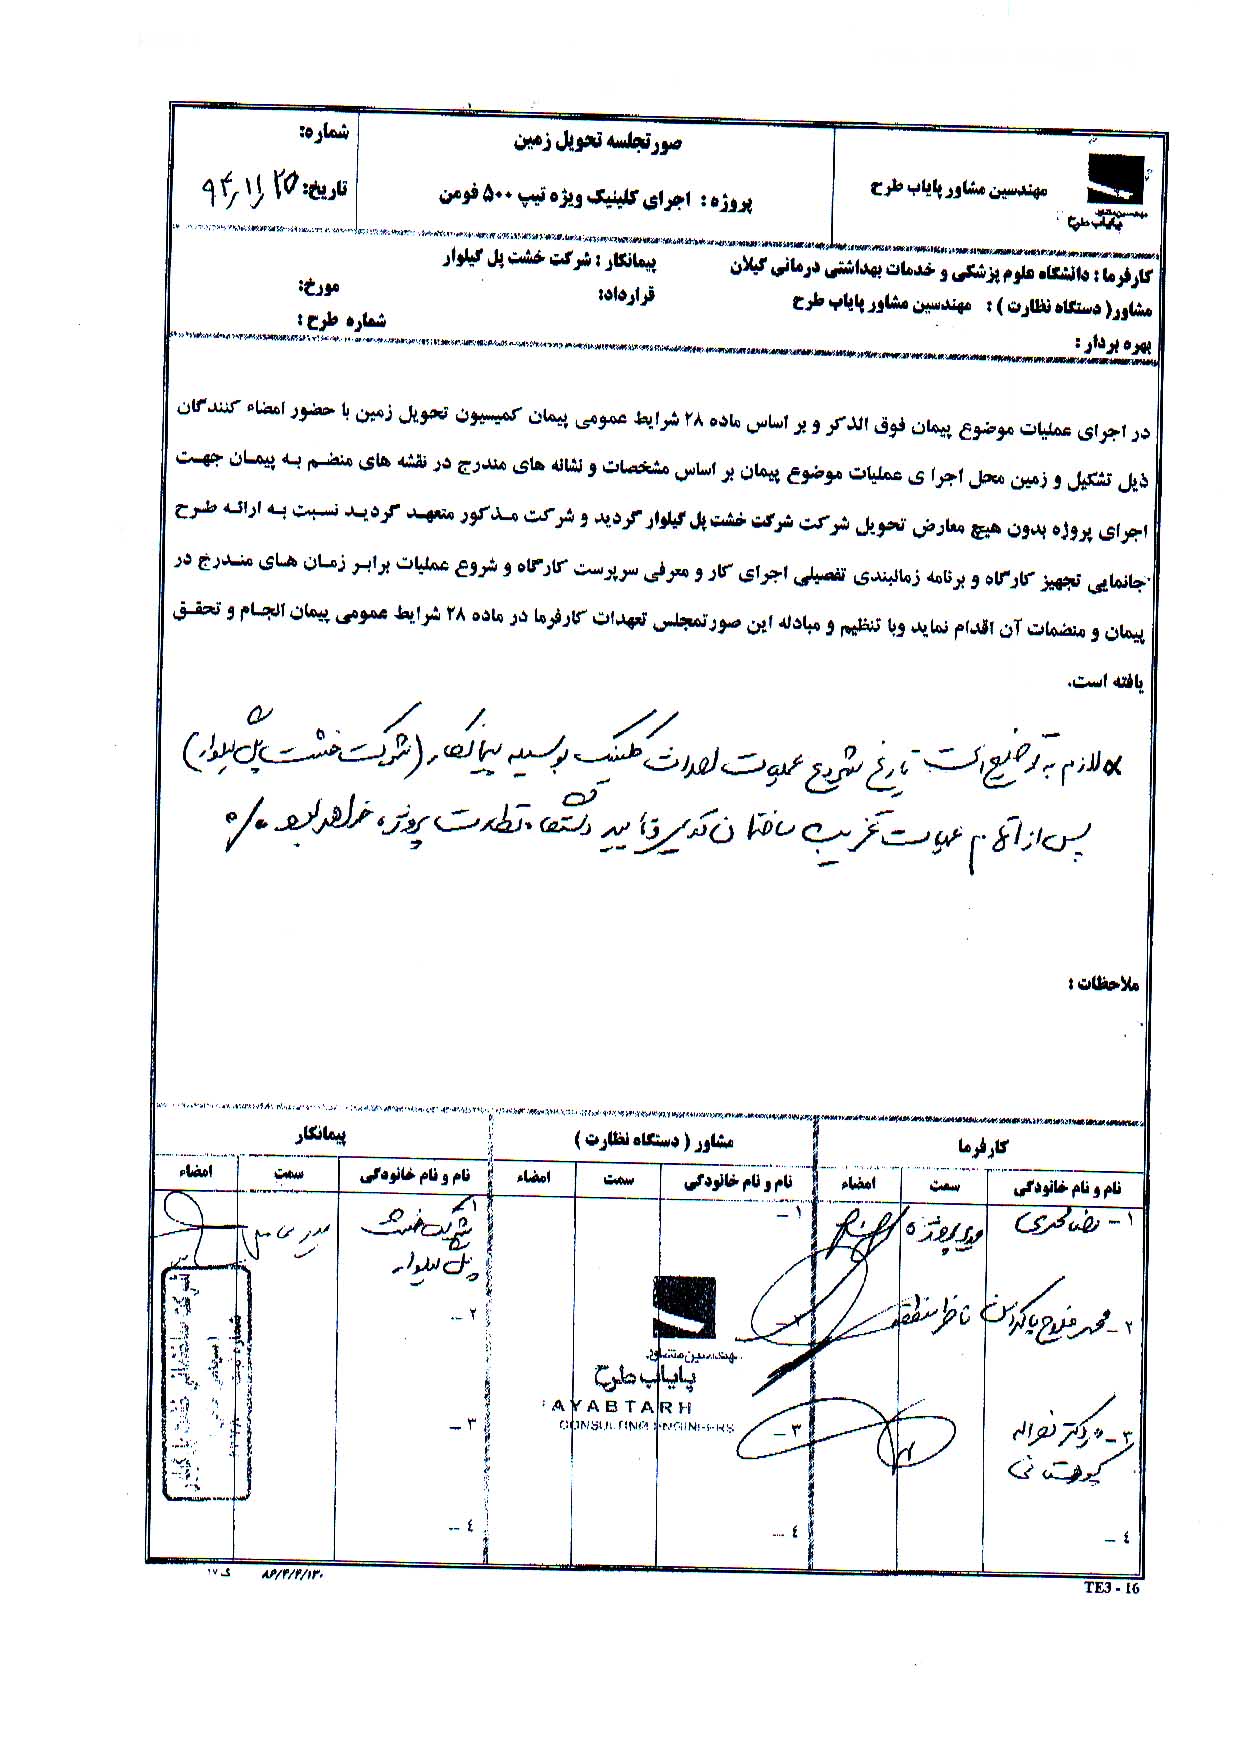 صورتجلسه تحویل زمین
پروژه : اجرای کلینیک ویژه تیپ ۵۰۰ فومن
مهندسین مشاور پایاب طرح
مهندسین مشاور
پایاب طرح
شماره:
تاریخ: ۹۴/۱۱/۲۵
کارفرما : دانشگاه علوم پزشکی و خدمات بهداشتی درمانی گیلان
پیمانکار : شرکت خشت پل گیلوار
مشاور( دستگاه نظارت ) : مهندسین مشاور پایاب طرح
قرارداد:
مورخ:
بهره بردار :
شماره طرح :
در اجرای عملیات موضوع پیمان فوق الذکر و بر اساس ماده ۲۸ شرایط عمومی پیمان کمیسیون تحویل زمین با حضور امضاء کنندگان
ذیل تشکیل و زمین محل اجرا ی عملیات موضوع پیمان بر اساس مشخصات و نشانه های مندرج در نقشه های منضم به پیمان جهت
اجرای پروژه بدون هیچ معارض تحویل شرکت شرکت خشت پل گیلوار گردید و شرکت مذکور متعهد گردید نسبت به ارائه طرح
جانمایی تجهیز کارگاه و برنامه زمانبندی تفصیلی اجرای کار و معرفی سرپرست کارگاه و شروع عملیات برابر زمان های مندرج در
پیمان و منضمات آن اقدام نماید وبا تنظیم و مبادله این صورتمجلس تعهدات کارفرما در ماده ۲۸ شرایط عمومی پیمان انجام و تحقق
یافته است.
* لازم به توضیح است تاریخ شروع عملیات احداث کلینیک بوسیله پیمانکار (شرکت خشت پل گیلوار)
پس از اتمام عملیات تخریب ساختمان قدیمی و تایید دستگاه نظارت پروژه خواهد بود ٪
ملاحظات :
کارفرما
مشاور ( دستگاه نظارت )
پیمانکار
نام و نام خانوادگی سمت امضاء
نام و نام خانودگی سمت امضاء
نام و نام خانودگی سمت امضاء
۱- رضا محمدی مدیر پروژه
۱-
۱- شرکت خشت
پل گیلوار
مدیر عامل
۲- ناظر منطقه
۲-
۲-
مهندسین مشاور
پایاب طرح
AYABTARH
CONSULTING ENGINEERS
۳- دکتر نصراله
کوهستانی
۳-
۳-
٤-
٤-
٤-
TE3 - 16
۸۶/۴/۴/۱۳۰
ک ۱۷